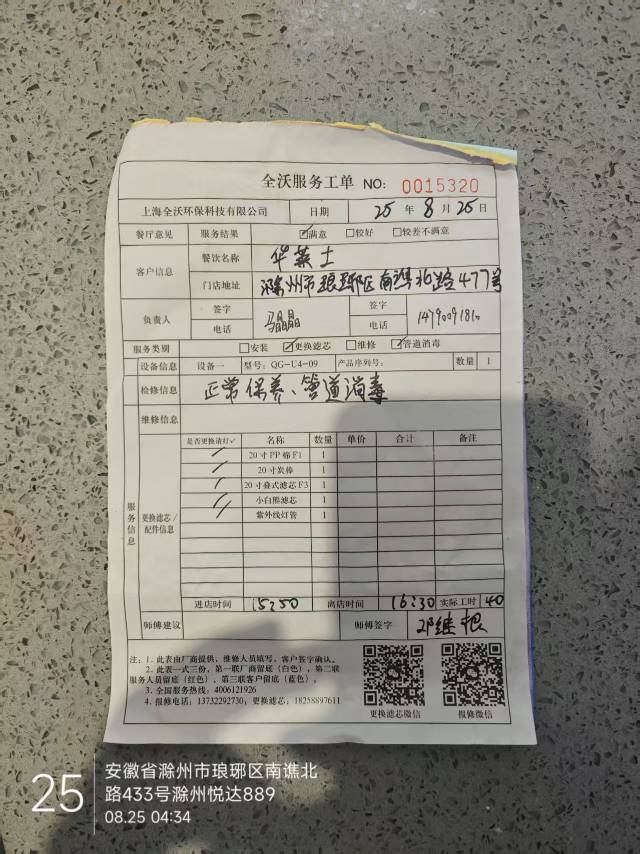 全沃服务工单 NO: 0015320
上海全沃环保科技有限公司 日期 25 年 8 月 25 日
餐厅意见 服务结果 ☑满意 □较好 □较差不满意
客户信息 餐饮名称 华莱士
门店地址 滁州市琅琊区南谯北路477号
负责人 签字 马晶晶 签字
电话 电话 14790091810
服务类别 □安装 ☑更换滤芯 □维修 ☑管道消毒
设备信息 设备一 型号: QG-U4-09 产品序列号: 数量 1
检修信息 正常保养、管道消毒
维修信息
服务信息 更换滤芯/配件信息
是否更换请打✓ 名称 数量 单价 合计 备注
20寸PP棉F1 1
20寸炭棒 1
20寸叠式滤芯F3 1
小白熊滤芯 1
紫外线灯管 1
进店时间 15:50 离店时间 16:30 实际工时 40
师傅建议 师傅签字 邓继根
注: 1. 此表由厂商提供、维修人员填写、客户签字确认。
2. 此表一式三份, 第一联厂商留底(白色), 第二联
服务人员留底(红色), 第三联客户留底(蓝色)。
3. 全国服务热线: 4006121926
4. 报修电话: 13732292730, 更换滤芯: 18258897611
更换滤芯微信 报修微信
25
安徽省滁州市琅琊区南谯北
路433号滁州悦达889
08.25 04:34